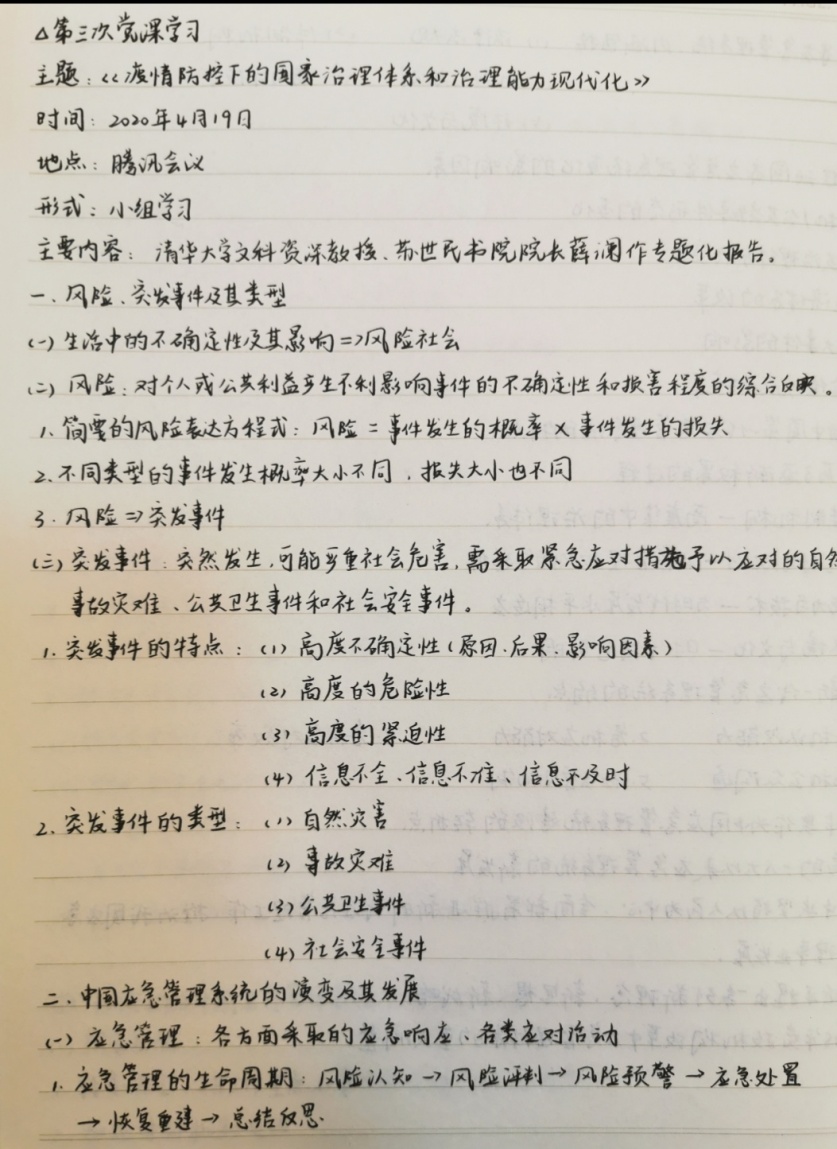 △第三次党课学习
主题：《疫情防控下的国家治理体系和治理能力现代化》
时间：2020年4月19日
地点：腾讯会议
形式：小组学习
主要内容：清华大学文科资深教授、苏世民书院院长薛澜作专题化报告。
一、风险、突发事件及其类型
(一)生活中的不确定性及其影响=>风险社会
(二)风险：对个人或公共利益产生不利影响事件的不确定性和损害程度的综合反映。
1.简要的风险表达方程式：风险=事件发生的概率×事件发生的损失
2.不同类型的事件发生概率大小不同，损失大小也不同
3.风险=>突发事件
(三)突发事件：突然发生，可能严重社会危害，需采取紧急应对措施予以应对的自然
事故灾难、公共卫生事件和社会安全事件。
1.突发事件的特点：(1)高度不确定性(原因、后果、影响因素)
(2)高度的危险性
(3)高度的紧迫性
(4)信息不全、信息不准、信息不及时
2.突发事件的类型：(1)自然灾害
(2)事故灾难
(3)公共卫生事件
(4)社会安全事件
二、中国应急管理系统的演变及其发展
(一)应急管理：各方面采取的应急响应、各类应对活动
1.应急管理的生命周期：风险认知→风险评判→风险预警→应急处置
→恢复重建→总结反思